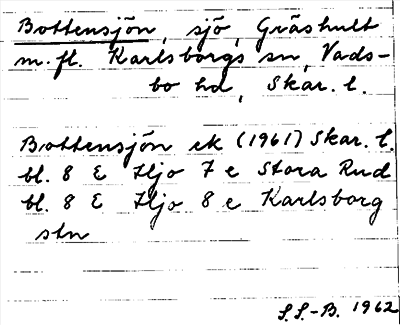 Bottensjön, sjö, Gräshult
m.fl. Karlsborgs sn, Vads-
bo hd, Skar. l.
Bottensjön ek (1961) Skar. l.
bl. 8 E Hjo 7 e Stora Rud
bl. 8 E Hjo 8 e Karlsborg
stn
S.S.-B. 1962